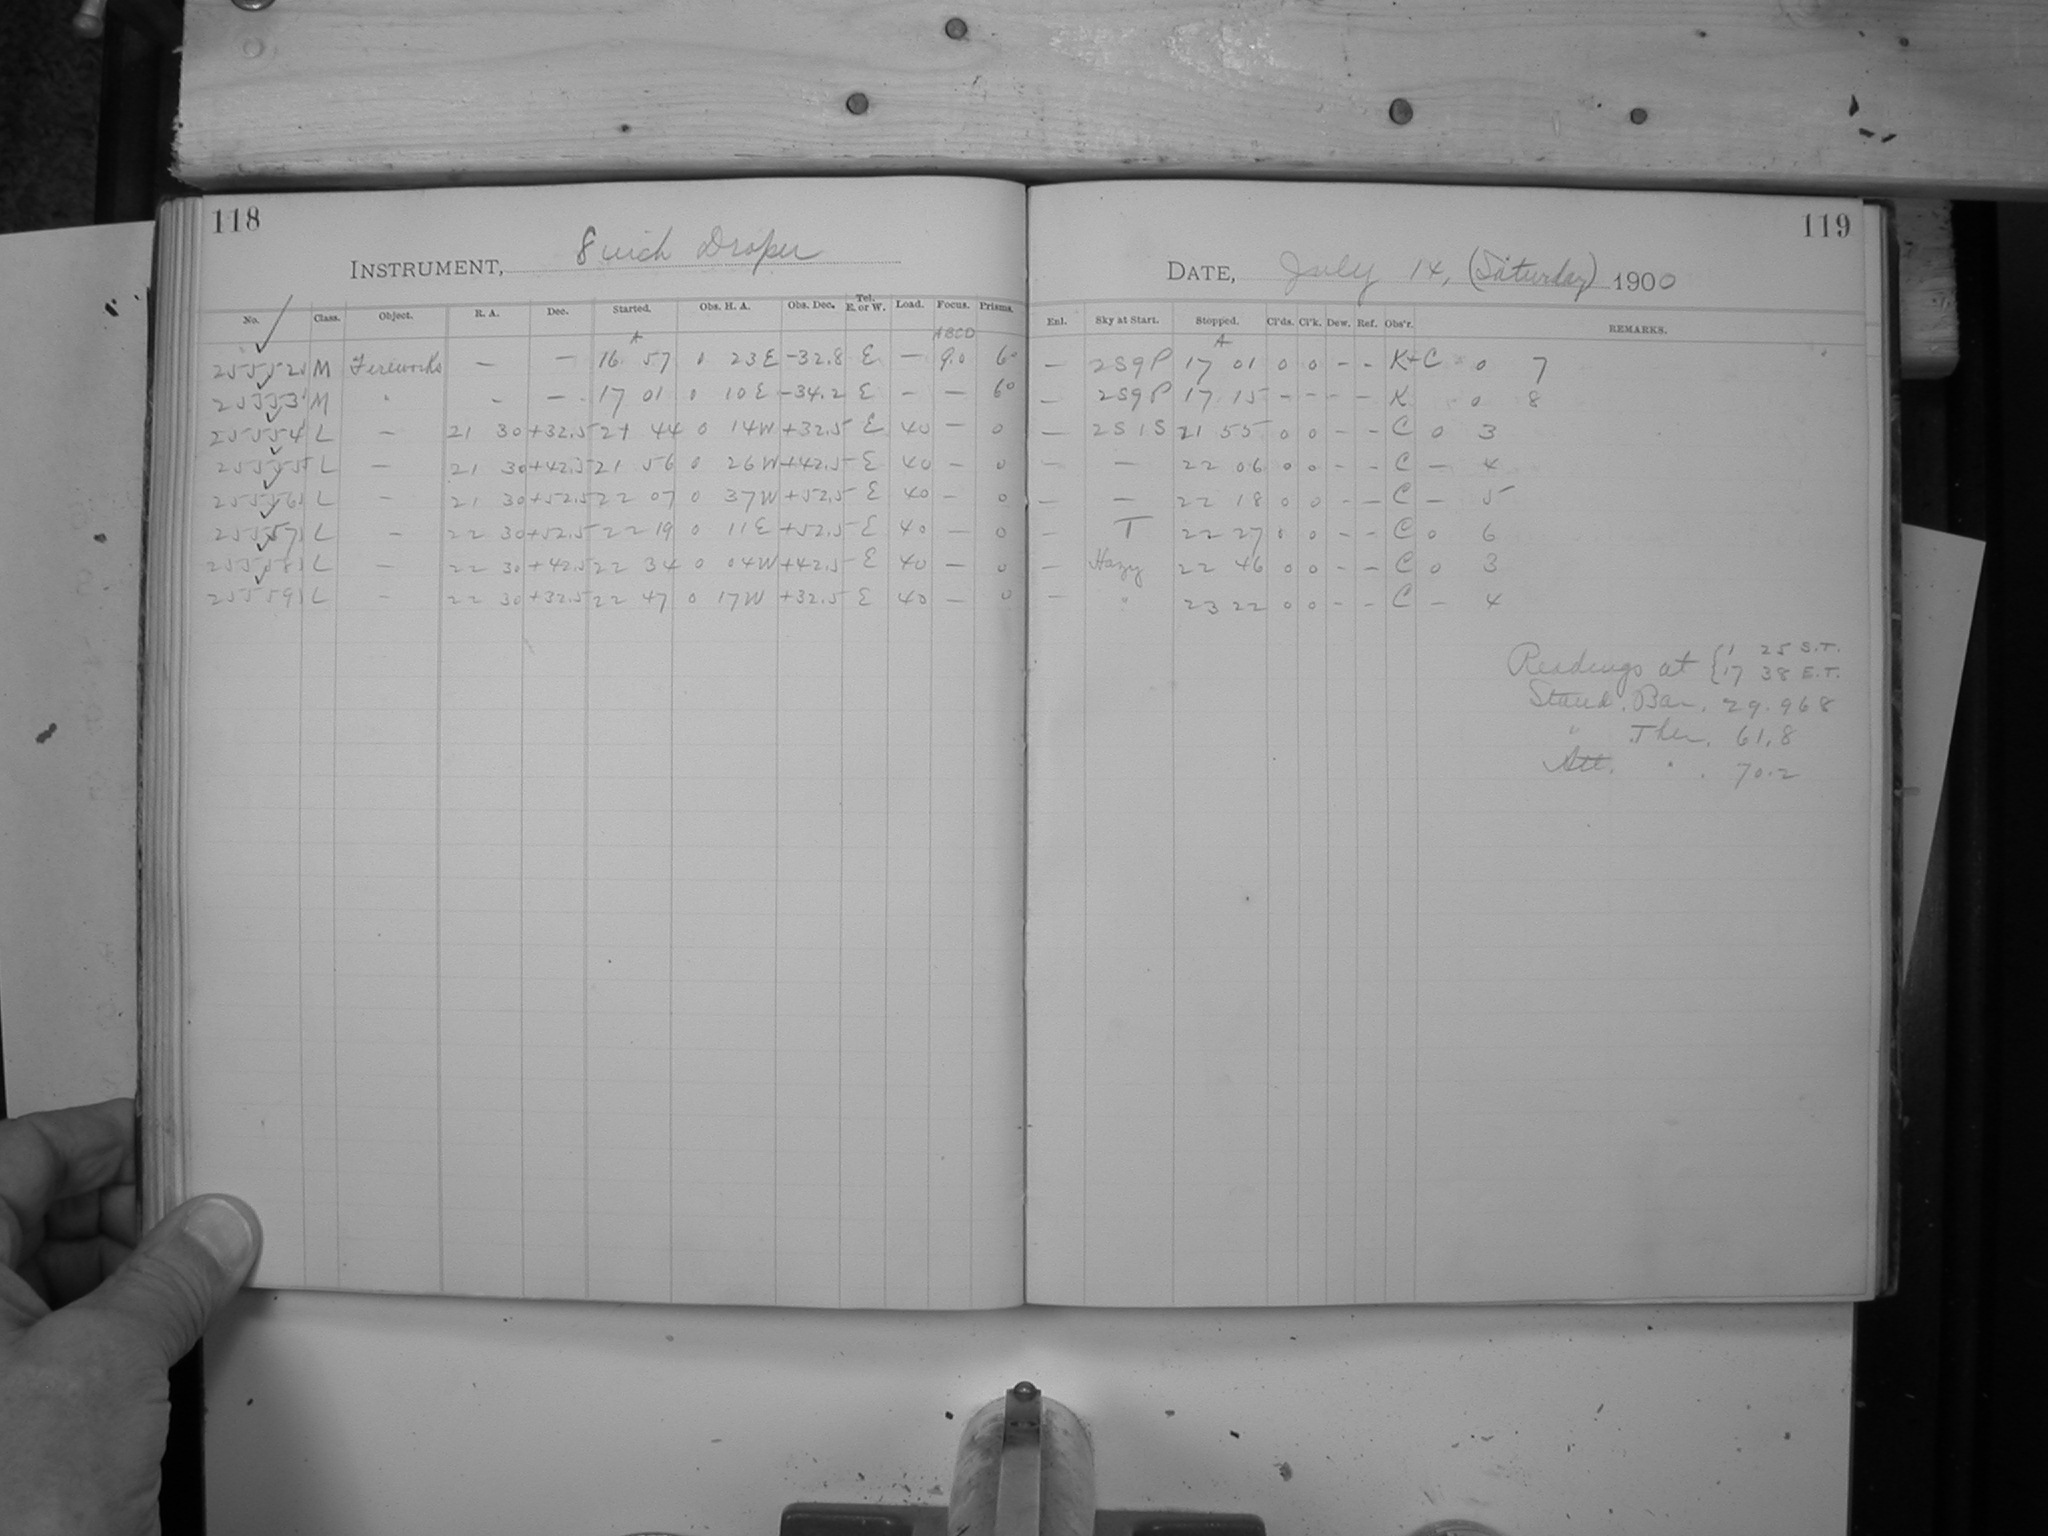 118
INSTRUMENT, 8 inch Draper
No. Class. Object. R. A. Dec. Started. Obs. H. A. Obs. Dec. Tel. E. or W. Load. Focus. Prisms.
A ABCD
25552 M Fireworks — — 16 57 0 23E -32.8 E — 9.0 60
25553 M " - - 17 01 0 10E -34.2 E - — 60
25554 L — 21 30 +32.5 21 44 0 14W +32.5 E 40 — 0
25555 L — 21 30 +42.5 21 56 0 26W +42.5 E 40 — 0
25556 L — 21 30 +52.5 22 07 0 37W +52.5 E 40 - 0
25557 L — 22 30 +52.5 22 19 0 11E +52.5 E 40 — 0
25558 L — 22 30 +42.5 22 34 0 04W +42.5 E 40 — 0
25559 L — 22 30 +32.5 22 47 0 17W +32.5 E 40 — 0
119
DATE, July 14, (Saturday) 1900
Enl. Sky at Start. Stopped. Cl'ds. Cl'k. Dew. Ref. Obs'r. REMARKS.
A
— 2S9P 17 01 0 0 - - K+C 0 7
— 2S9P 17 15 - - - - K 0 8
— 2S1S 21 55 0 0 - - C 0 3
— — 22 06 0 0 - - C — 4
— — 22 18 0 0 - — C — 5
— T 22 27 0 0 - - C 0 6
— Hazy 22 46 0 0 - - C 0 3
— " 23 22 0 0 - - C — 4
Readings at { 1 25 S.T.
17 38 E.T.
Stand. Bar. 29.968
" Ther. 61.8
Att. " . 70.2